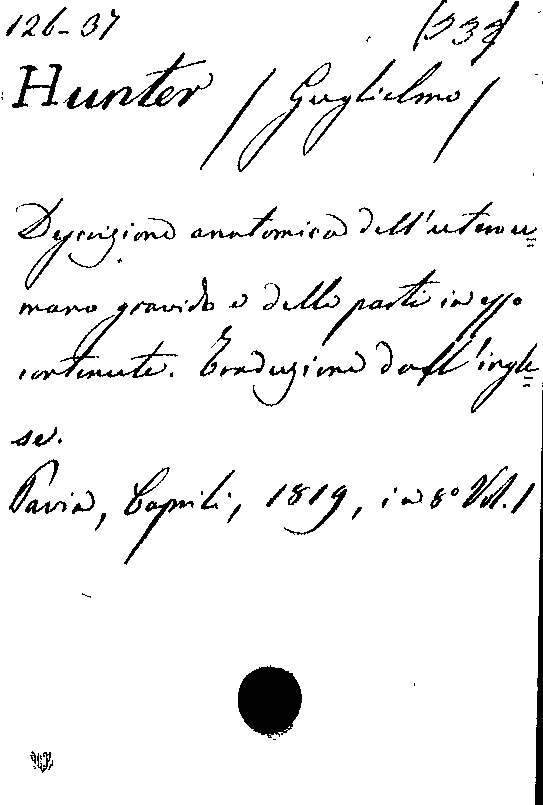 126-37
Hunter (Guglielmo)
Descrizione anatomica dell'utero u=
mano gravido e delle parti in esso
contenute. Traduzione dall'ingle=
se.
Pavia, Capelli, 1819, in 8° Vol. 1